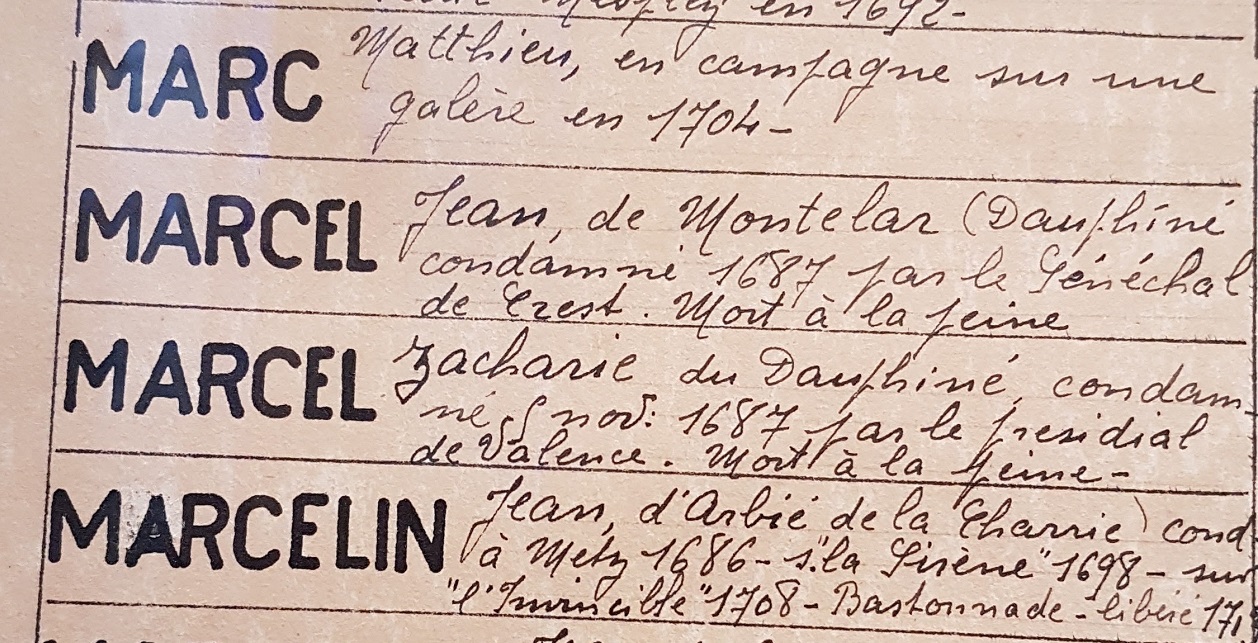 en 1692-
MARC Matthieu, en campagne sur une
galère en 1704-
MARCEL Jean, de Montelar (Dauphiné
condamné 1687 par le Sénéchal
de Crest. Mort à la peine
MARCEL Zacharie du Dauphiné, condam-
né nov: 1687 par le presidial
de Valence. Mort à la peine-
MARCELIN Jean, d'Arbié de la Charrie) cond
à Metz 1686- s."la Sirène" 1698- sur
"l'Invincible" 1708- Bastonnade- libéré 171